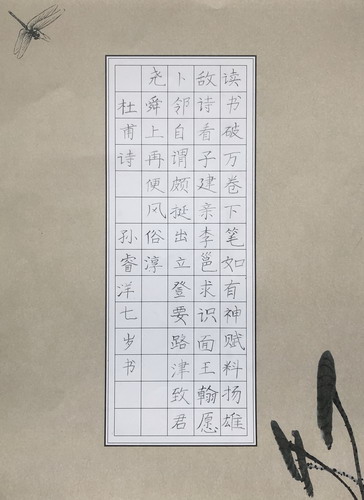 读书破万卷下笔如有神赋料扬雄
敌诗看子建亲李邕求识面王翰愿
卜邻自谓颇挺出立登要路津致君
尧舜上再便风俗淳
杜甫诗 孙睿洋七岁书